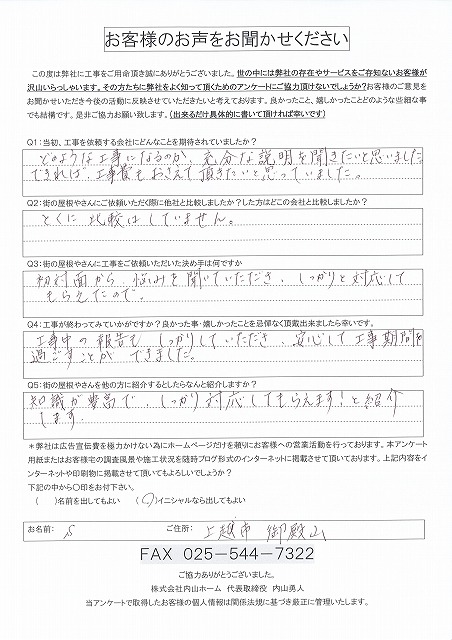 お客様のお声をお聞かせください
この度は弊社に工事をご用命頂き誠にありがとうございました。世の中には弊社の存在やサービスをご存知ないお客様が
沢山いらっしゃいます。その方たちに弊社をよく知って頂くためのアンケートにご協力頂けないでしょうか?お客様のご意見を
お聞かせいただき今後の活動に反映させていただきたいと考えております。良かったこと、嬉しかったことどのような些細な事
でも結構です。是非ご協力お願い致します。(出来るだけ具体的に書いて頂ければ幸いです)
Q1:当初、工事を依頼する会社にどんなことを期待されていましたか?
どのような工事になるのか、充分な説明を聞きたいと思いました
できれば、工事費もおさえて頂きたいと思っていました。
Q2:街の屋根やさんにご依頼いただく際に他社と比較しましたか?した方はどこの会社と比較しましたか?
とくに比較はしていません。
Q3:街の屋根やさんに工事をご依頼いただいた決め手は何ですか
初対面から、悩みを聞いていただき、しっかりと対応して
もらえたので。
Q4:工事が終わってみていかがですか?良かった事・嬉しかったことを忌憚なく頂戴出来ましたら幸いです。
工事中の報告も、しっかりしていただき、安心して工事期間を
過ごすことができました。
Q5:街の屋根やさんを他の方に紹介するとしたらなんと紹介しますか?
知識が豊富で、しっかり対応してもらえます!と紹介
します
*弊社は広告宣伝費を極力かけない為にホームページだけを頼りにお客様への営業活動を行っております。本アンケート
用紙またはお客様宅の調査風景や施工状況を随時ブログ形式のインターネットに掲載させて頂いております。上記内容をイ
ンターネットや印刷物に掲載させて頂いてもよろしいでしょうか?
下記の中から〇印をお付下さい。
( )名前を出してもよい (〇)イニシャルなら出してもよい
お名前: S ご住所: 上越市 御殿山
FAX 025-544-7322
ご協力ありがとうございました。
株式会社内山ホーム 代表取締役 内山勇人
当アンケートで取得したお客様の個人情報は関係法規に基づき厳正に管理いたします。